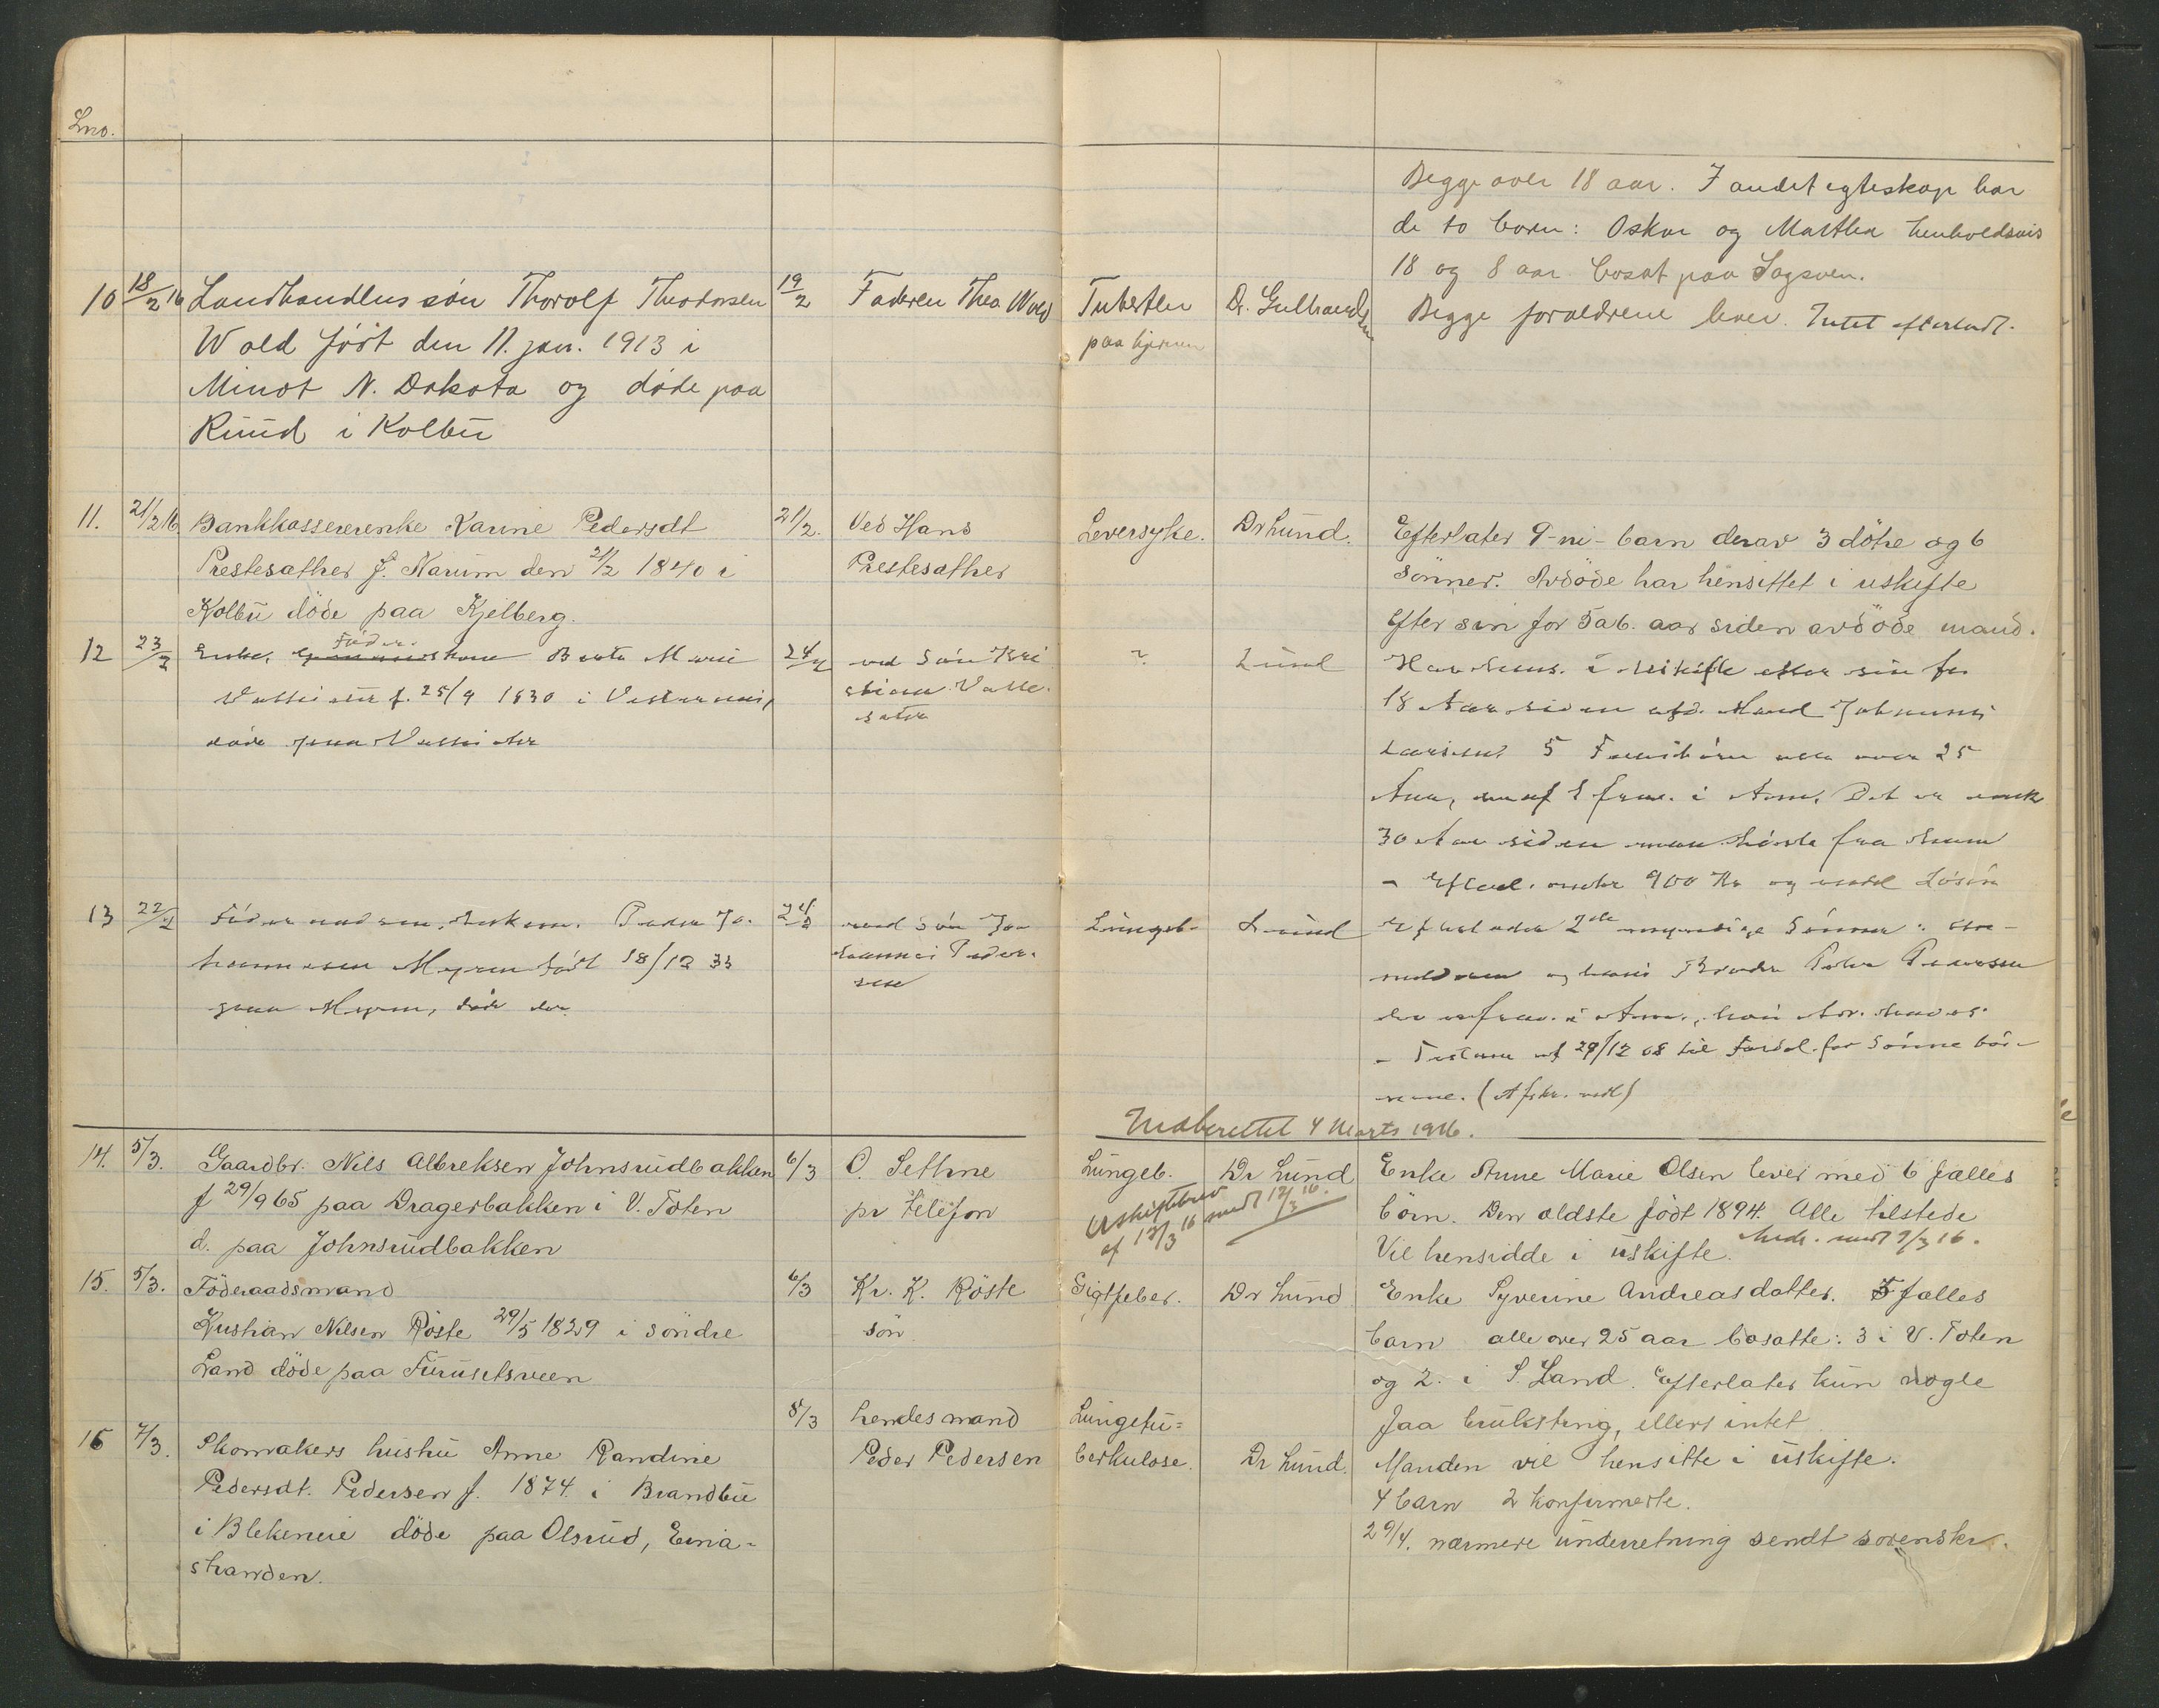 Lno.
Begge over 18 aar. I andet egteskap har
de to barn: Oskar og Martha henholdsvis
18 og 8 aar bosat paa Sagsveen.
10 18/2 16 Landhandlerssön Thorolf Theodorsen 19/2 Faderen Theo. Wold Tuberkler Dr. Gulbrandsen Begge foraldrene lever. Intet efterladt.
Wold født den 11. jan. 1913 i paa hjernen
Minot N. Dakota og døde paa
Ruud i Kolbu
11. 21/2 16 Bankkassererenke Karine Pedersdt 21/2. Ved Hans Leversyke. Dr Lund. Efterlater 9-ni-barn derav 3 dötre og 6
Prestesæther f. Narum den 21/2 1840 i Prestesæther sönner. Avdöde har hensittet i uskifte
Kolbu döde paa Kjelberg. efter sin for 5 a 6. aar siden avdöde mand.
12 23/2 Enke, Föder. Berte Marie 24/2 ved Sön Kri ? Lund Har hens. i Uskifte efter sin for
f. 25/9 1830 i stian 18 Aar siden afd. Mand Johannes
döde paa Larsen 5 over 25
Aar, i Am. Det er
30 Aar siden man hörte fra
- 900 Kr og
13 22/2 Peder Jo- 24/2 ved Sön Jo- Lungeb. Lund 2de myndige Sönner:
hannesen Myren född 18/12 33 hannes Peder- og hans Broder Peter
paa Myren, döde der sen i Am.,
- af 29/12 08 til for Sönne bör-
nene. (Afskr. vedl)
Indberettet 4 Marts 1916.
14. 5/3. Gaardbr. Nils Albreksen Johnsrudbakken 6/3 O. Sethne Lungeb. Dr Lund Enke Anne Marie Olsen lever med 6 fælles
f 29/9 65 paa Dragerbakken i V. Toten pr Telefon Uskiftebev börn. Den ældste födt 1894. Alle tilstede
d. paa Johnsrudbakken af 12/3 16 medt 12/3 16. Vil hensidde i uskifte. medt 7/3 16.
15. 5/3. Föderaadsmand 6/3 Kr. K. Röste Gigtfeber. Dr Lund Enke Syverine Andreasdatter. 5 fælles
Kristian Nilsen Röste 29/5 1829 i söndre sön barn alle over 25 aar bosatte: 3 i V. Toten
Land döde paa Furusetsveen og 2. i S. Land. Efterlater kun nogle
8/3 hendes mand Lungetu= faa bruksting, ellers intet
16 7/3. Skomakers hustru Anne Randine Peder Pedersen berkulose. Dr Lund. Manden vil hensitte i uskifte.
Pedersdt. Pedersen f. 1874 i Brandbu 4 barn 2 konfirmerte.
i Blekeneie döde paa Olsrud, Eina- 29/4. nærmere underretning sendt sorenskr.
stranden.